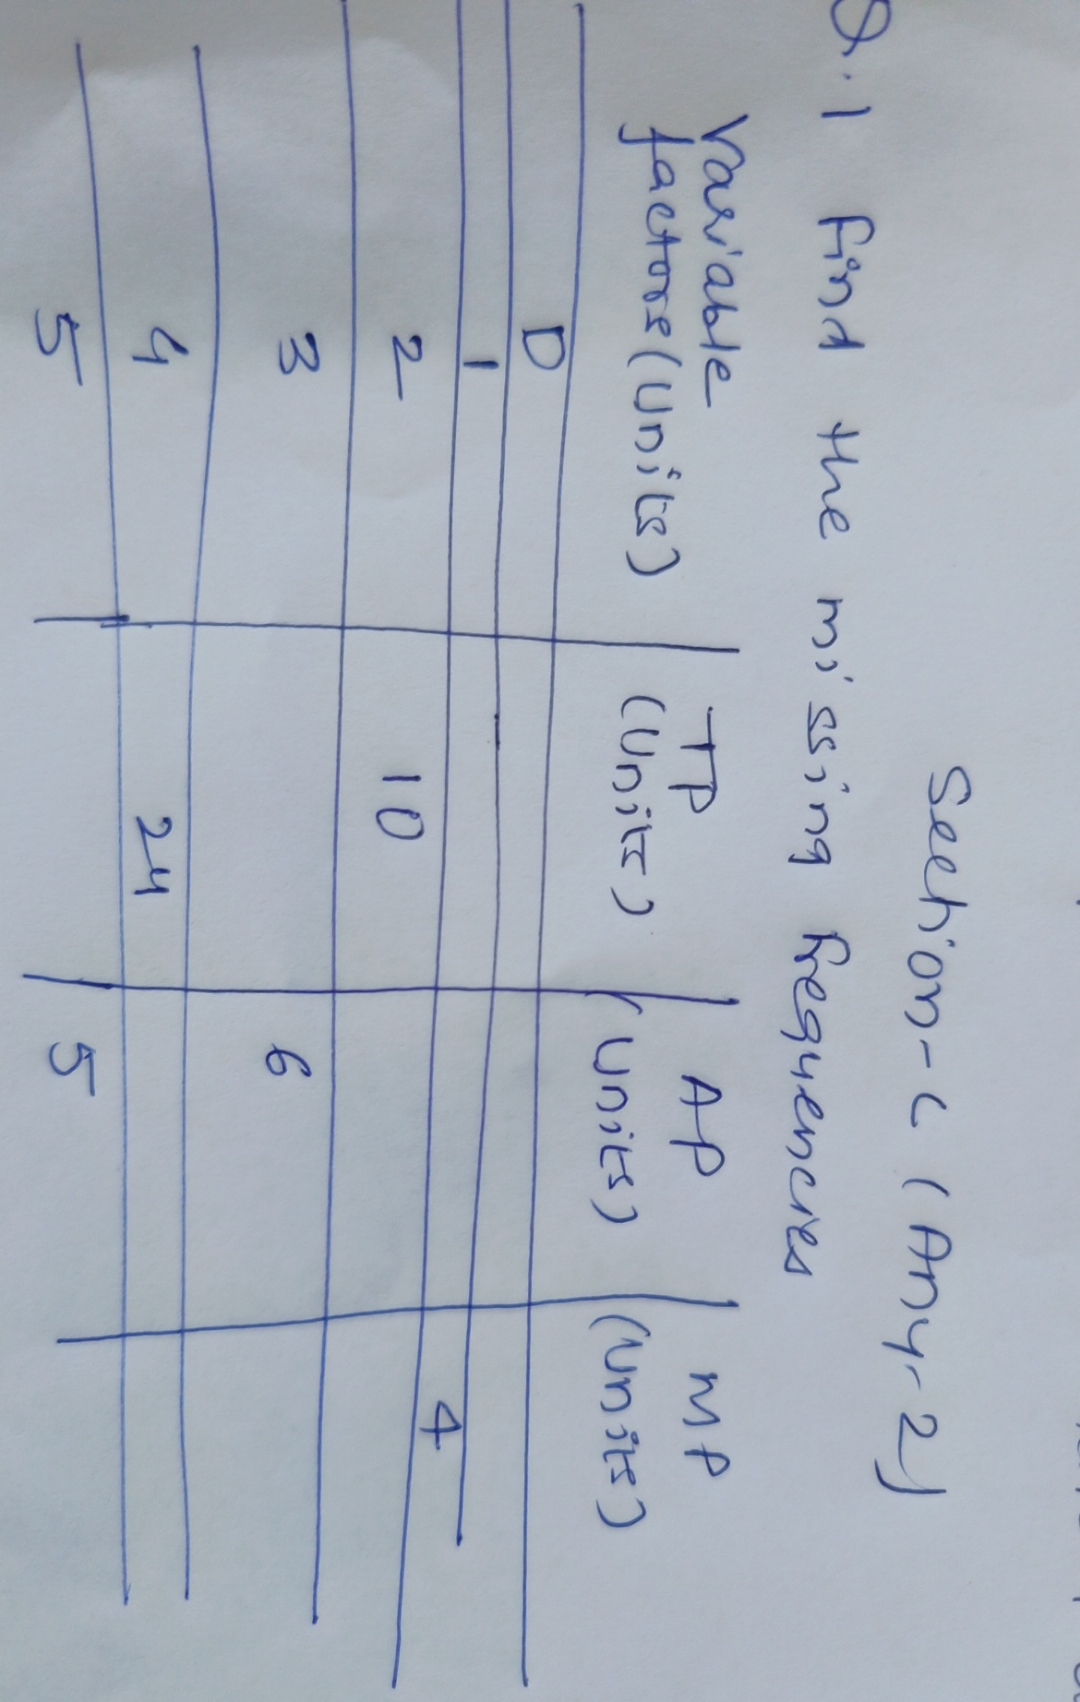 Section-C (Any-2)
Q.1 Find the missing frequencies
Variable factors (Units) | TP (Units) | AP (Units) | MP (Units)
0
1 | - | | 4
2 | 10
3 | | 6
4 | 24
5 | | 5